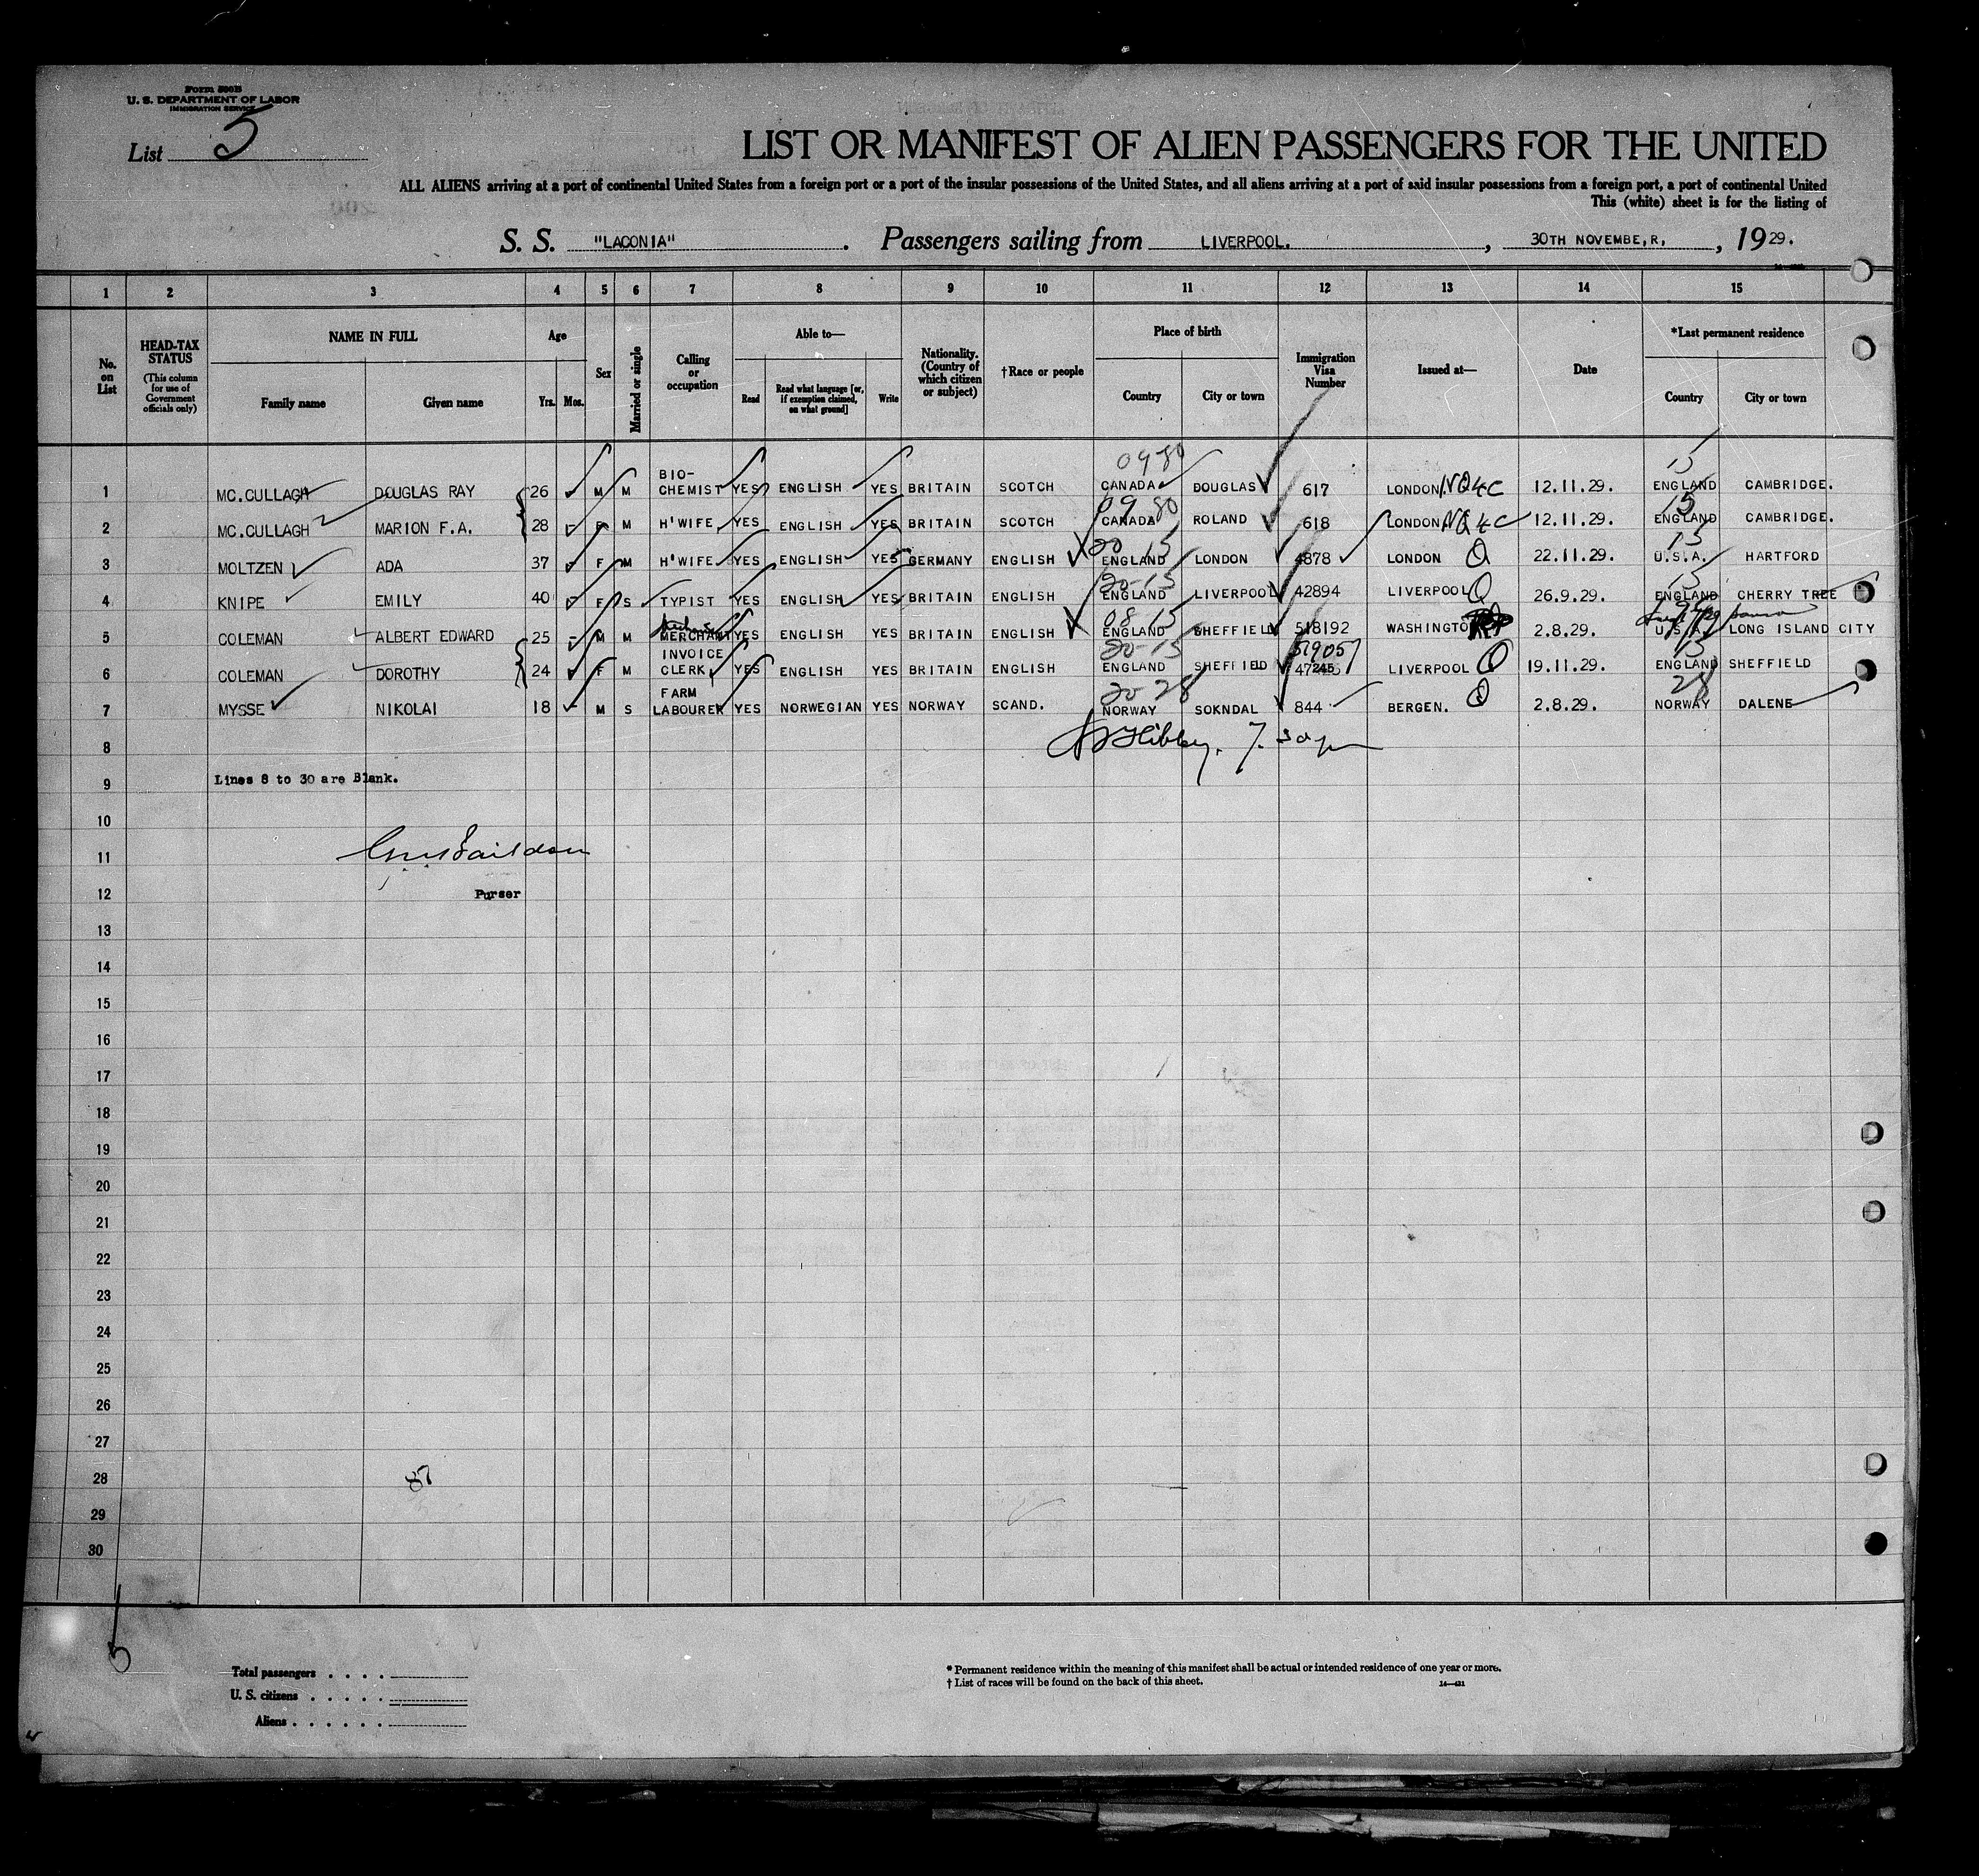 Form 500B
U. S. DEPARTMENT OF LABOR
IMMIGRATION SERVICE
List 5
LIST OR MANIFEST OF ALIEN PASSENGERS FOR THE UNITED
ALL ALIENS arriving at a port of continental United States from a foreign port or a port of the insular possessions of the United States, and all aliens arriving at a port of said insular possessions from a foreign port, a port of continental United
This (white) sheet is for the listing of
S. S. "LACONIA". Passengers sailing from LIVERPOOL., 30TH NOVEMBE,R,, 1929.
1 2 3 4 5 6 7 8 9 10 11 12 13 14 15
No. on List
HEAD-TAX STATUS
(This column for use of Government officials only)
NAME IN FULL
Family name Given name
Age
Yrs. Mos.
Sex
Married or single
Calling or occupation
Able to—
Read Read what language [or, if exemption claimed, on what ground] Write
Nationality. (Country of which citizen or subject)
†Race or people
Place of birth
Country City or town
Immigration Visa Number
Issued at—
Date
*Last permanent residence
Country City or town
0980 15
1 MC.CULLAGH DOUGLAS RAY 26 M M BIO-CHEMIST YES ENGLISH YES BRITAIN SCOTCH CANADA DOUGLAS 617 LONDON NQ4C 12.11.29. ENGLAND CAMBRIDGE.
09 80 15
2 MC.CULLAGH MARION F.A. 28 F M H'WIFE YES ENGLISH YES BRITAIN SCOTCH CANADA ROLAND 618 LONDON NQ4C 12.11.29. ENGLAND CAMBRIDGE.
20 15 15
3 MOLTZEN ADA 37 F M H'WIFE YES ENGLISH YES GERMANY ENGLISH ENGLAND LONDON 4878 LONDON Q 22.11.29. U.S.A. HARTFORD
20-15 15
4 KNIPE EMILY 40 F S TYPIST YES ENGLISH YES BRITAIN ENGLISH ENGLAND LIVERPOOL 42894 LIVERPOOL Q 26.9.29. ENGLAND CHERRY TREE
08-15
5 COLEMAN ALBERT EDWARD 25 M M MERCHANT YES ENGLISH YES BRITAIN ENGLISH ENGLAND SHEFFIELD 518192 WASHINGTO 2.8.29. U.S.A. LONG ISLAND CITY
20-15 51905 15
6 COLEMAN DOROTHY 24 F M INVOICE CLERK YES ENGLISH YES BRITAIN ENGLISH ENGLAND SHEFFIELD 47245 LIVERPOOL Q 19.11.29. ENGLAND SHEFFIELD
20-28 28
7 MYSSE NIKOLAI 18 M S FARM LABOURER YES NORWEGIAN YES NORWAY SCAND. NORWAY SOKNDAL 844 BERGEN. Q 2.8.29. NORWAY DALENE
8
9 Lines 8 to 30 are Blank.
10
11
12 Purser
13
14
15
16
17
18
19
20
21
22
23
24
25
26
27
28 87
29
30
5
Total passengers
U. S. citizens
Aliens
* Permanent residence within the meaning of this manifest shall be actual or intended residence of one year or more.
† List of races will be found on the back of this sheet.
14—421